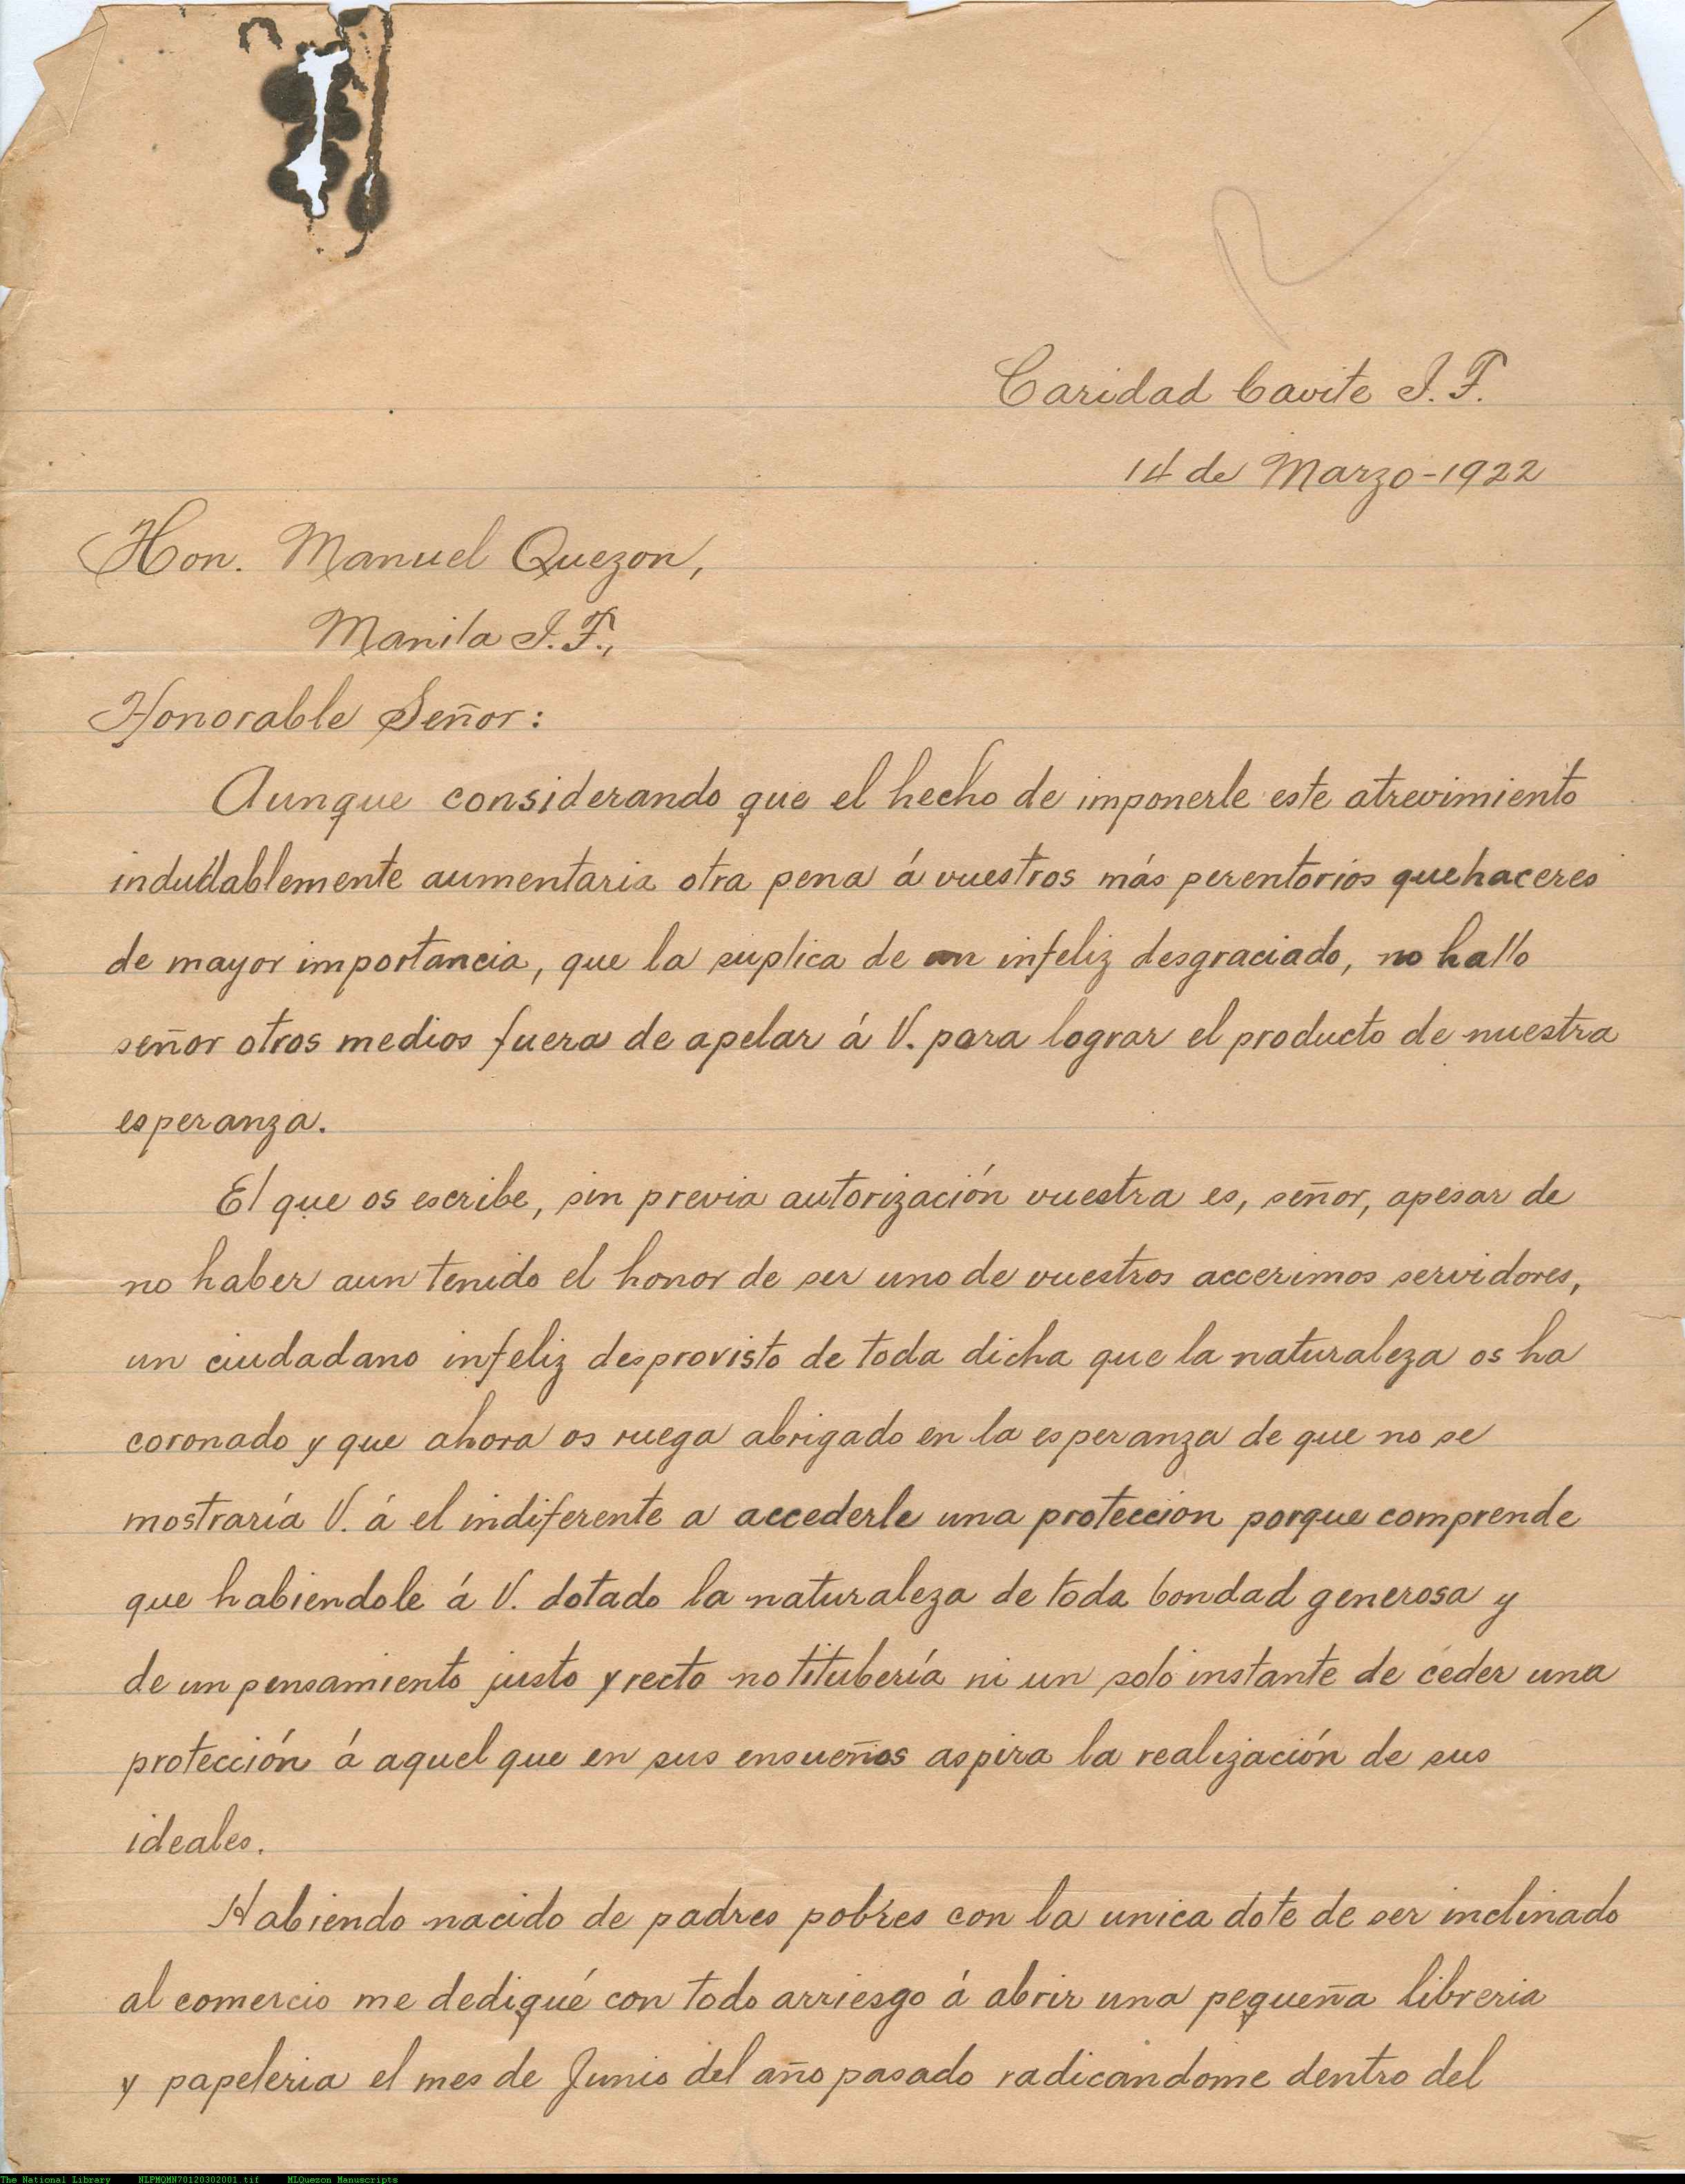 Caridad Cavite I. F.
14 de Marzo-1922
Hon. Manuel Quezon,
Manila I. F.,
Honorable Señor:
Aunque considerando que el hecho de imponerle este atrevimiento
indudablemente aumentaria otra pena á vuestros más perentorios quehaceres
de mayor importancia, que la suplica de un infeliz desgraciado, no hallo
señor otros medios fuera de apelar á V. para lograr el producto de nuestra
esperanza.
El que os escribe, sin previa autorización vuestra es, señor, apesar de
no haber aun tenido el honor de ser uno de vuestros accerimos servidores,
un ciudadano infeliz desprovisto de toda dicha que la naturaleza os ha
coronado y que ahora os ruega abrigado en la esperanza de que no se
mostraría V. á el indiferente a accederle una protección porque comprende
que habiendole á V. dotado la naturaleza de toda bondad generosa y
de un pensamiento justo y recto no titubería ni un solo instante de ceder una
protección á aquel que en sus ensueños aspira la realización de sus
ideales.
Habiendo nacido de padres pobres con la unica dote de ser inclinado
al comercio me dediqué con todo arriesgo á abrir una pequeña libreria
y papeleria el mes de Junio del año pasado radicandome dentro del
The National Library NLPMQMN70120302001.tif MLQuezon Manuscripts